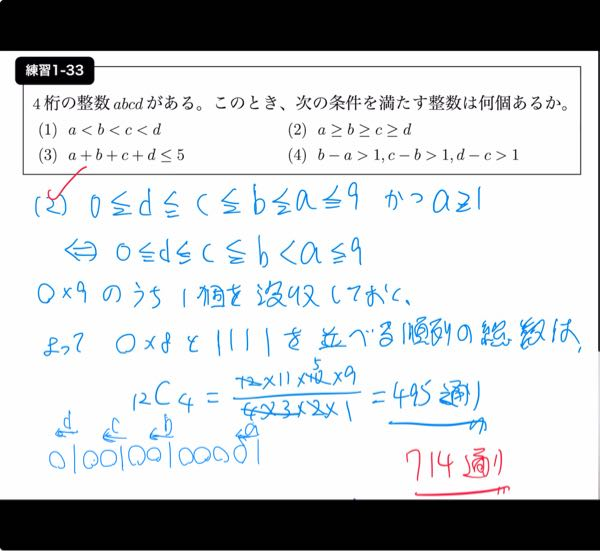 練習1-33
4桁の整数 abcd がある。このとき、次の条件を満たす整数は何個あるか。
(1) a < b < c < d
(2) a ≥ b ≥ c ≥ d
(3) a + b + c + d ≤ 5
(4) b − a > 1, c − b > 1, d − c > 1
(2) 0 ≦ d ≦ c ≦ b ≦ a ≦ 9 かつ a ≧ 1
⇔ 0 ≦ d ≦ c ≦ b < a ≦ 9
○×9 のうち 1個を没収しておく、
よって ○×8 と | | | | を並べる順列の総数は、
₁₂C₄ = 12×11×10×9 / 4×3×2×1 = 495通り
5
d c b a
○|○○|○○|○○○○○|
714通り